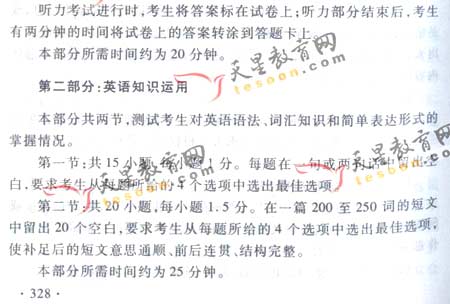 听力考试进行时,考生将答案标在试卷上;听力部分结束后,考生
有两分钟的时间将试卷上的答案转涂到答题卡上。
本部分所需时间约为 20 分钟。
天星教育网
tesoon.com
第二部分:英语知识运用
本部分共两节,测试考生对英语语法、词汇知识和简单表达形式的
掌握情况。
第一节:共 15 小题,每小题 1 分。每题在一句或两句话中留出空
白,要求考生从每题所给的 4 个选项中选出最佳选项。
天星教育网
tesoon.com
天星教育网
tesoon.com
第二节:共 20 小题,每小题 1.5 分。在一篇 200 至 250 词的短文
中留出 20 个空白,要求考生从每题所给的 4 个选项中选出最佳选项,
使补足后的短文意思通顺、前后连贯、结构完整。
本部分所需时间约为 25 分钟。
· 328 ·